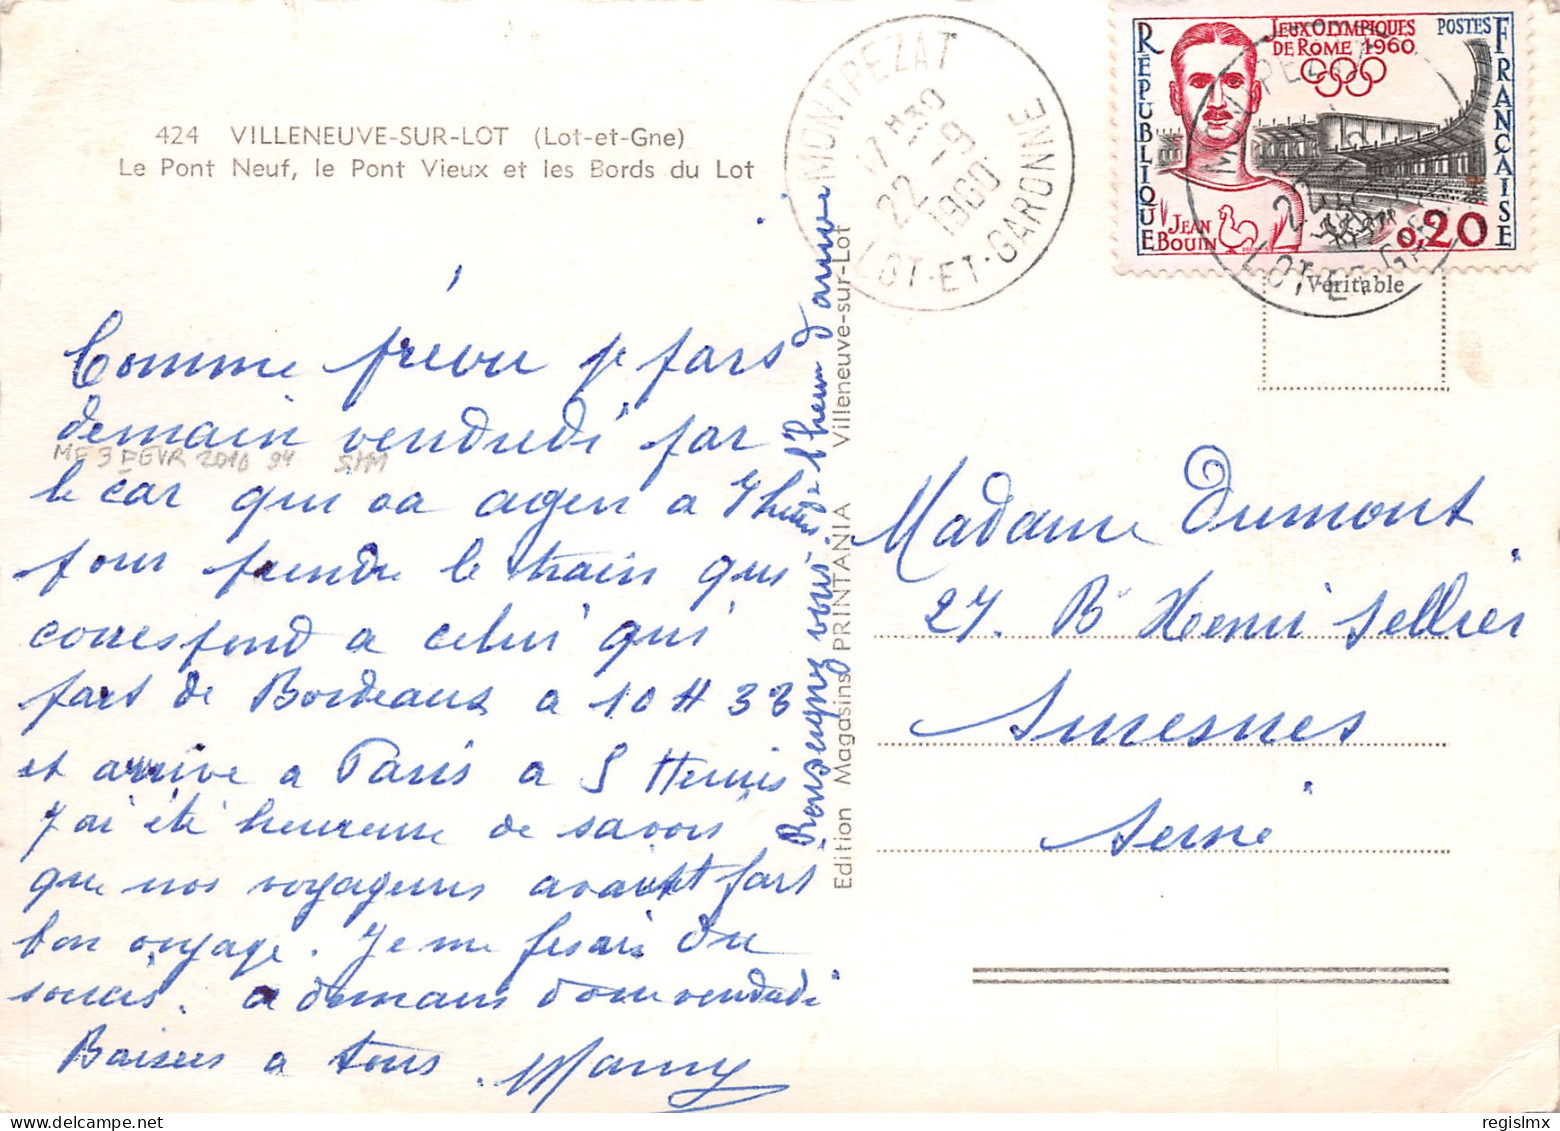 424 VILLENEUVE-SUR-LOT (Lot-et-Gne)
Le Pont Neuf, le Pont Vieux et les Bords du Lot
MONTPEZAT
17 H 30
22 - 9
1960
LOT-ET-GARONNE
RÉPUBLIQUE
FRANÇAISE
POSTES
JEUX OLYMPIQUES
DE ROME 1960
JEAN
BOUIN
0,20
MONTPEZAT
22
LOT-ET-GARONNE
Véritable
Comme prévu je pars
demain vendredi par
le car qui va agen a 7 heures
pour prendre le train qui
correspond a celui qui
part de Bordeaux a 10 H 33
et arrive a Paris a 5 Heures
J'ai été heureuse de savoir
que nos voyageurs avait fait
bon voyage. Je me fesais du
soucis. a demain donc vendredi
Baisers a tous. Mamy
Renseignez vous de l'heure d'arrivée
MF 3 FEVR 2010 94 SIM
Edition Magasins PRINTANIA Villeneuve-sur-Lot
Madame Dumont
27. Bd Henri Sellier
Suresnes
Seine
regislmx